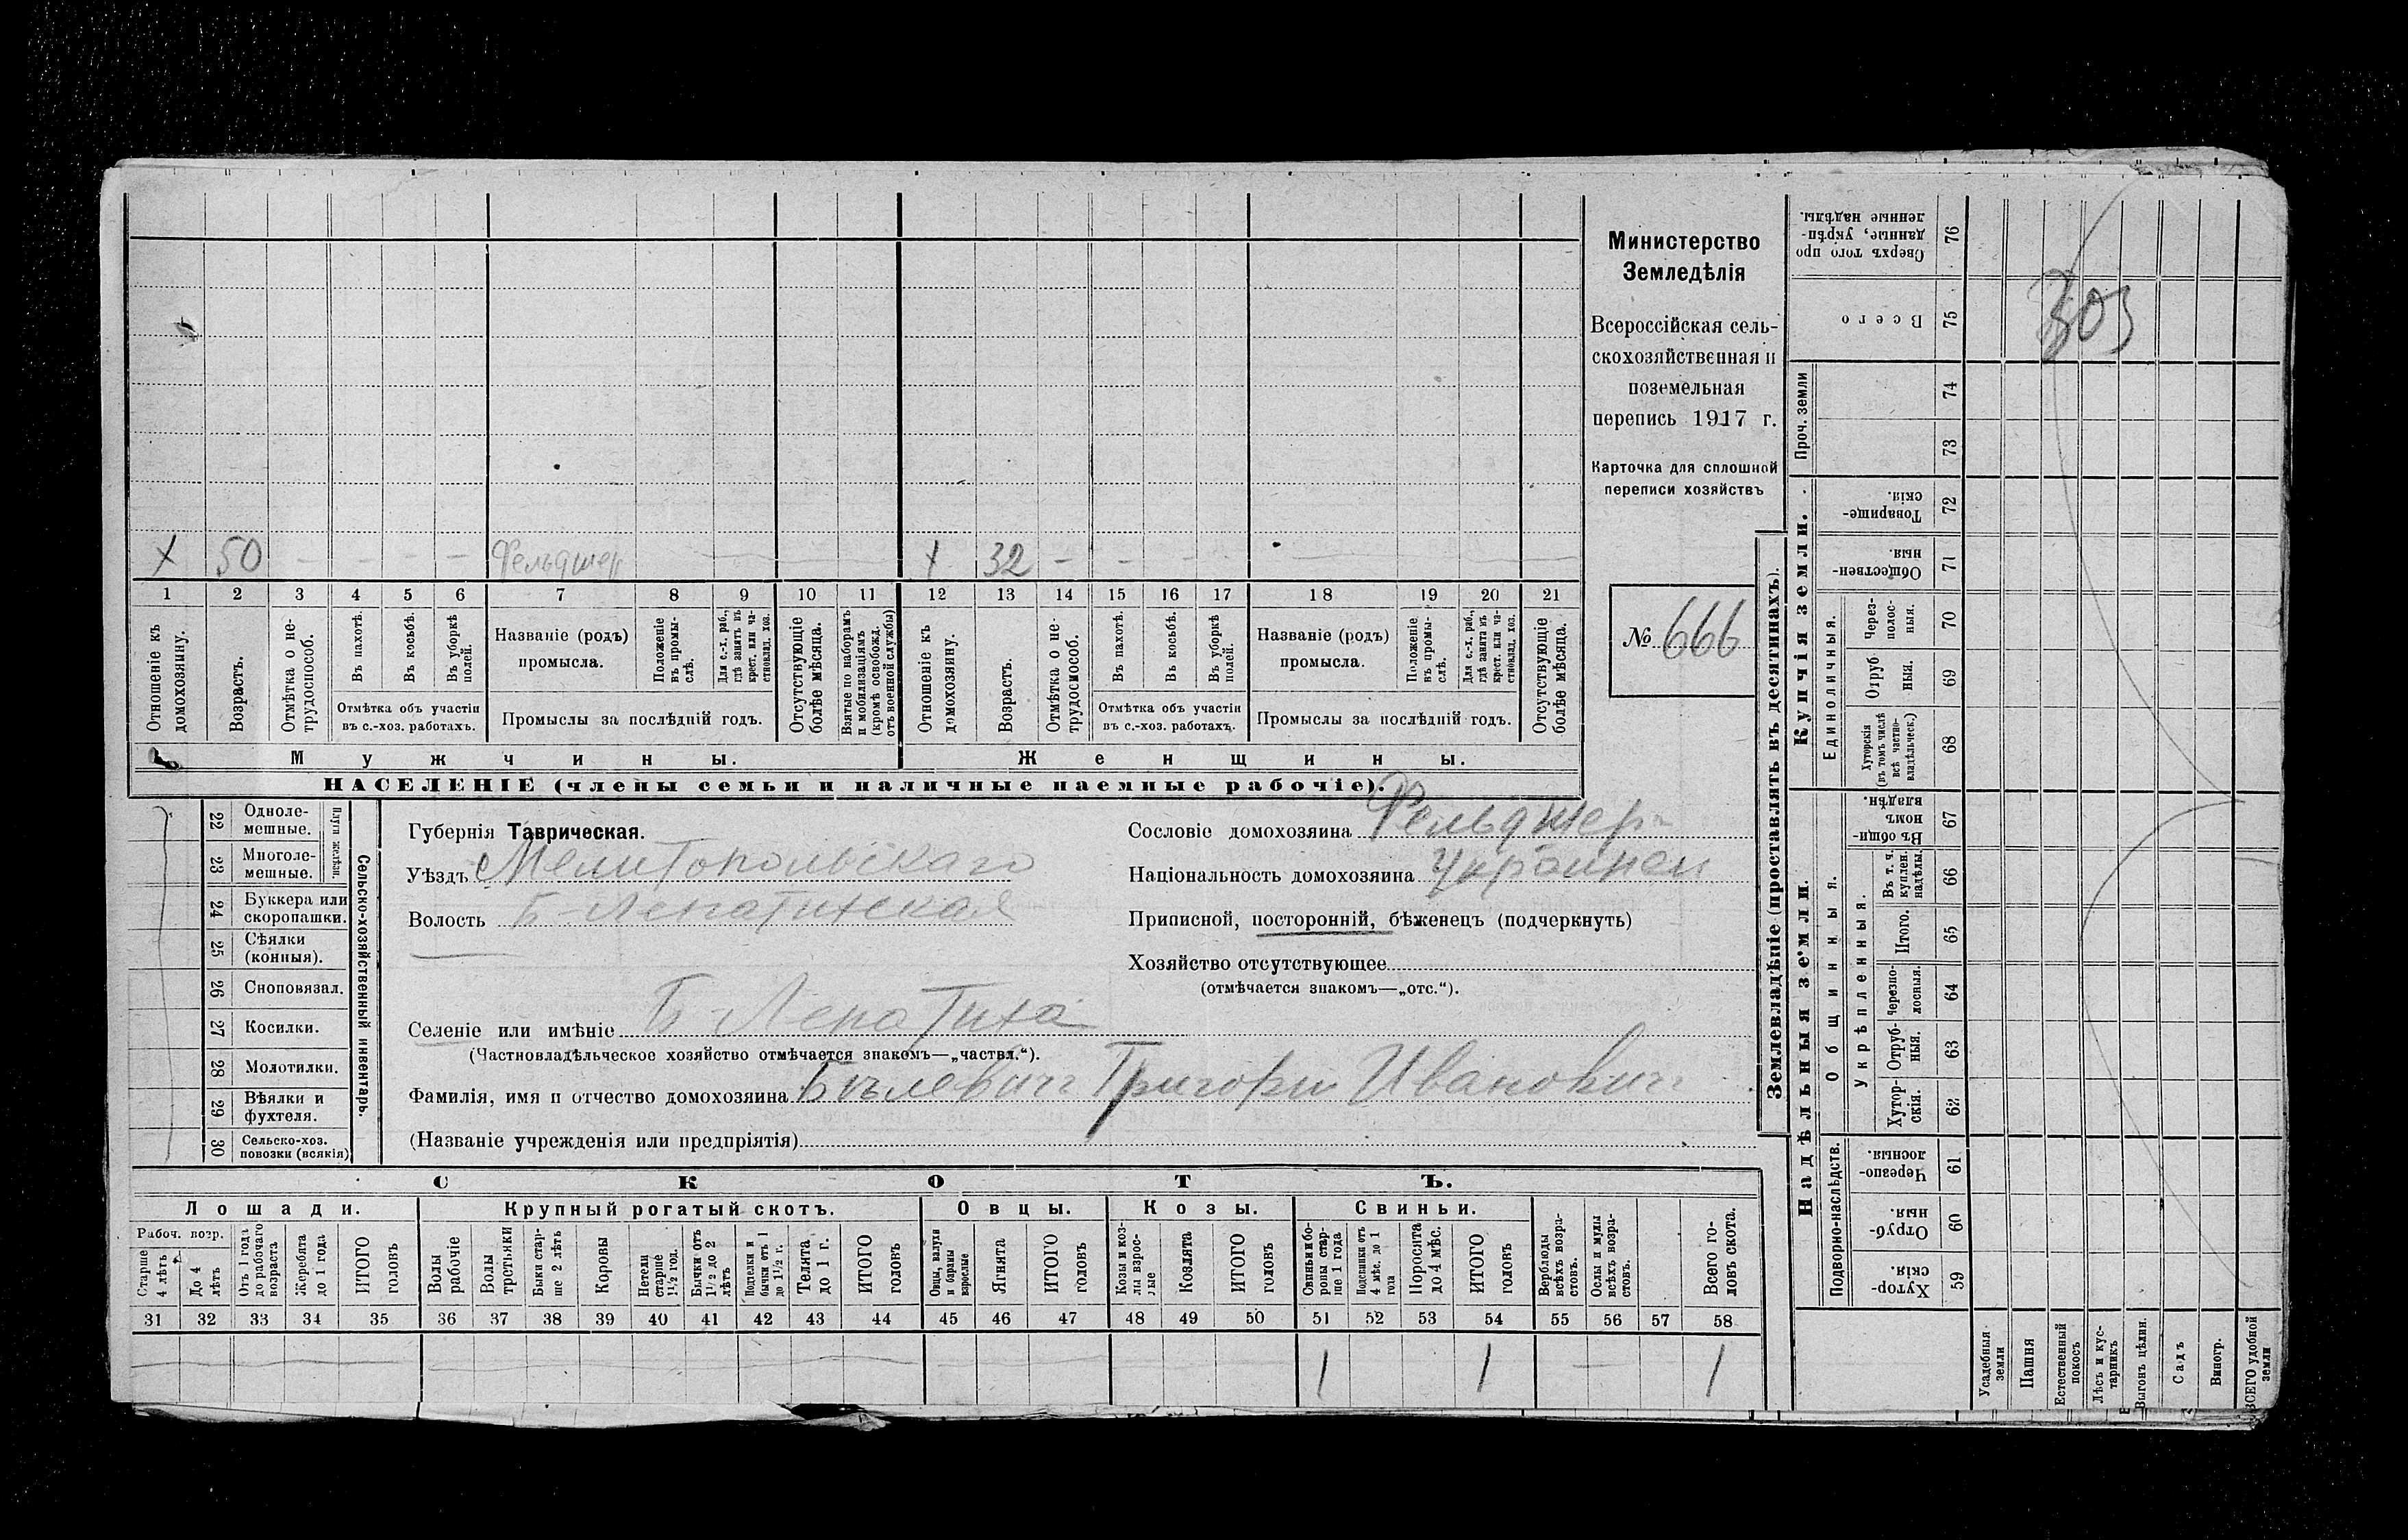 Министерство
Земледѣлія
Всероссійская сель-
скохозяйственная и
поземельная
перепись 1917 г.
Карточка для сплошной
переписи хозяйствъ
№ 666
X 50 — — — — Фельдшер X 32 — — —
1 2 3 4 5 6 7 8 9 10 11 12 13 14 15 16 17 18 19 20 21
Отношеніе къ домохозяину.
Возрастъ.
Отмѣтка о не-трудоспособ.
Въ пахотѣ.
Въ косьбѣ.
Въ уборкѣ полей.
Отмѣтка объ участіи
въ с.-хоз. работахъ.
Названіе (родъ)
промысла.
Положеніе въ промы-слѣ.
Для с.-х. раб., гдѣ занятъ въ крест. или ча-стновлад. хоз.
Промыслы за послѣдній годъ.
Отсутствующіе болѣе мѣсяца.
Взятые по наборамъ и мобилизаціямъ (кромѣ освобожд. отъ военной службы)
Отношеніе къ домохозяину.
Возрастъ.
Отмѣтка о не-трудоспособ.
Въ пахотѣ.
Въ косьбѣ.
Въ уборкѣ полей.
Отмѣтка объ участіи
въ с.-хоз. работахъ.
Названіе (родъ)
промысла.
Положеніе въ промы-слѣ.
Для с.-х. раб., гдѣ занята въ крест. или ча-стновлад. хоз.
Промыслы за послѣдній годъ.
Отсутствующіе болѣе мѣсяца.
Мужчины. Женщины.
НАСЕЛЕНІЕ (члены семьи и наличные наемные рабочіе).
22 Одноле-мешные.
23 Многоле-мешные.
Плуги желѣзн.
24 Буккера или скоропашки.
25 Сѣялки (конныя).
26 Сноповязал.
27 Косилки.
28 Молотилки.
29 Вѣялки и фухтеля.
30 Сельско-хоз. повозки (всякія)
Сельско-хозяйственный инвентарь.
Губернія Таврическая.
Уѣздъ Мелитопольскаго
Волость Б-Лепатихская
Сословіе домохозяина Фельдшер
Національность домохозяина Украинец
Приписной, посторонній, бѣженецъ (подчеркнуть)
Хозяйство отсутствующее
(отмѣчается знакомъ—„отс.“).
Селеніе или имѣніе Б Лепатиха
(Частновладѣльческое хозяйство отмѣчается знакомъ—„частвл.“).
Фамилія, имя и отчество домохозяина Бѣлевич Григори Иванович
(Названіе учрежденія или предпріятія)
СКОТЪ.
Лошади. Крупный рогатый скотъ. Овцы. Козы. Свиньи.
Рабоч. возр.
Старше 4 лѣтъ
До 4 лѣтъ
Отъ 1 года до рабочаго возраста
Жеребята до 1 года
ИТОГО головъ
Волы рабочіе
Волы третьяки
Быки стар-ше 2 лѣтъ
Коровы
Нетели старше 1½ год.
Бычки отъ 1½ до 2 лѣтъ
Подтелки и бычки отъ 1 до 1½ г.
Телята до 1 г.
ИТОГО головъ
Овцы, валухи и бараны взрослые
Ягнята
ИТОГО головъ
Козы и коз-лы взрос-лые
Козлята
ИТОГО головъ
Свиньи и бо-ровы стар-ше 1 года
Подсвинки отъ 4 мѣс. до 1 года
Поросята до 4 мѣс.
ИТОГО головъ
Верблюды всѣхъ возра-стовъ.
Ослы и мулы всѣхъ возра-стовъ.
Всего го-ловъ скота.
31 32 33 34 35 36 37 38 39 40 41 42 43 44 45 46 47 48 49 50 51 52 53 54 55 56 57 58
1 1 — 1
Землевладѣніе (проставлять въ десятинахъ).
Купчія земли.
Сверхъ того про данные, укрѣп-ленные надѣлы. 76
Всего 75
303
Проч. земли 74
73
Товарище-скія. 72
Обществен-ныя. 71
Единоличныя.
Через-полос-ныя. 70
Отруб ныя. 69
Хуторскія (въ томъ числѣ всѣ частно-владѣльческ.) 68
Надѣльныя земли.
Общинныя.
Въ общи-номъ владѣн. 67
Укрѣпленныя.
Въ т. ч. куплен. надѣлы. 66
Итого. 65
Черезпо-лосныя. 64
Отруб-ныя. 63
Хутор-скія. 62
Подворно-наслѣдств.
Черезпо-лосныя. 61
Отруб-ныя 60
Хутор-скія. 59
Усадебныя земли
Пашня
Естественный покосъ
Лѣсъ и кус-тарникъ
Выгонъ цѣлин.
Садъ
Виногр.
ВСЕГО удобной земли